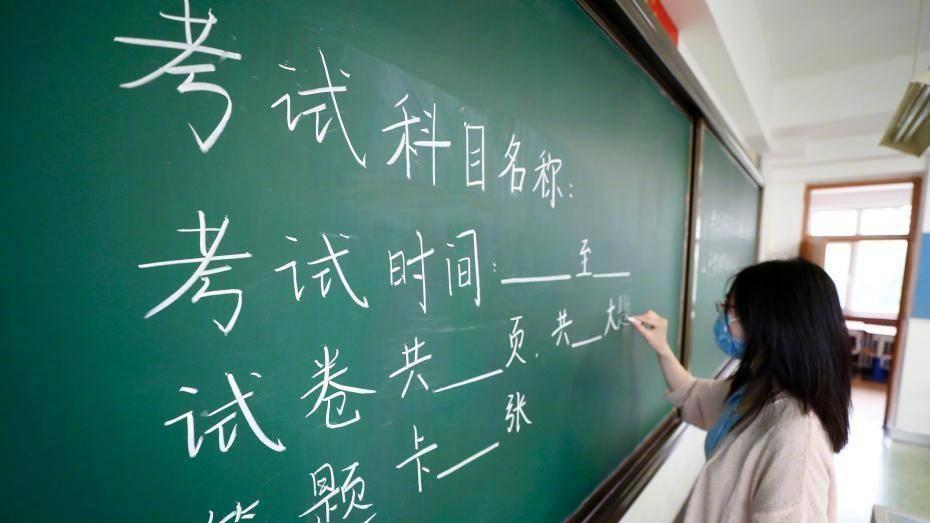 考试科目名称:
考试时间:____至____
试卷共____页,共____大题
答题卡____张